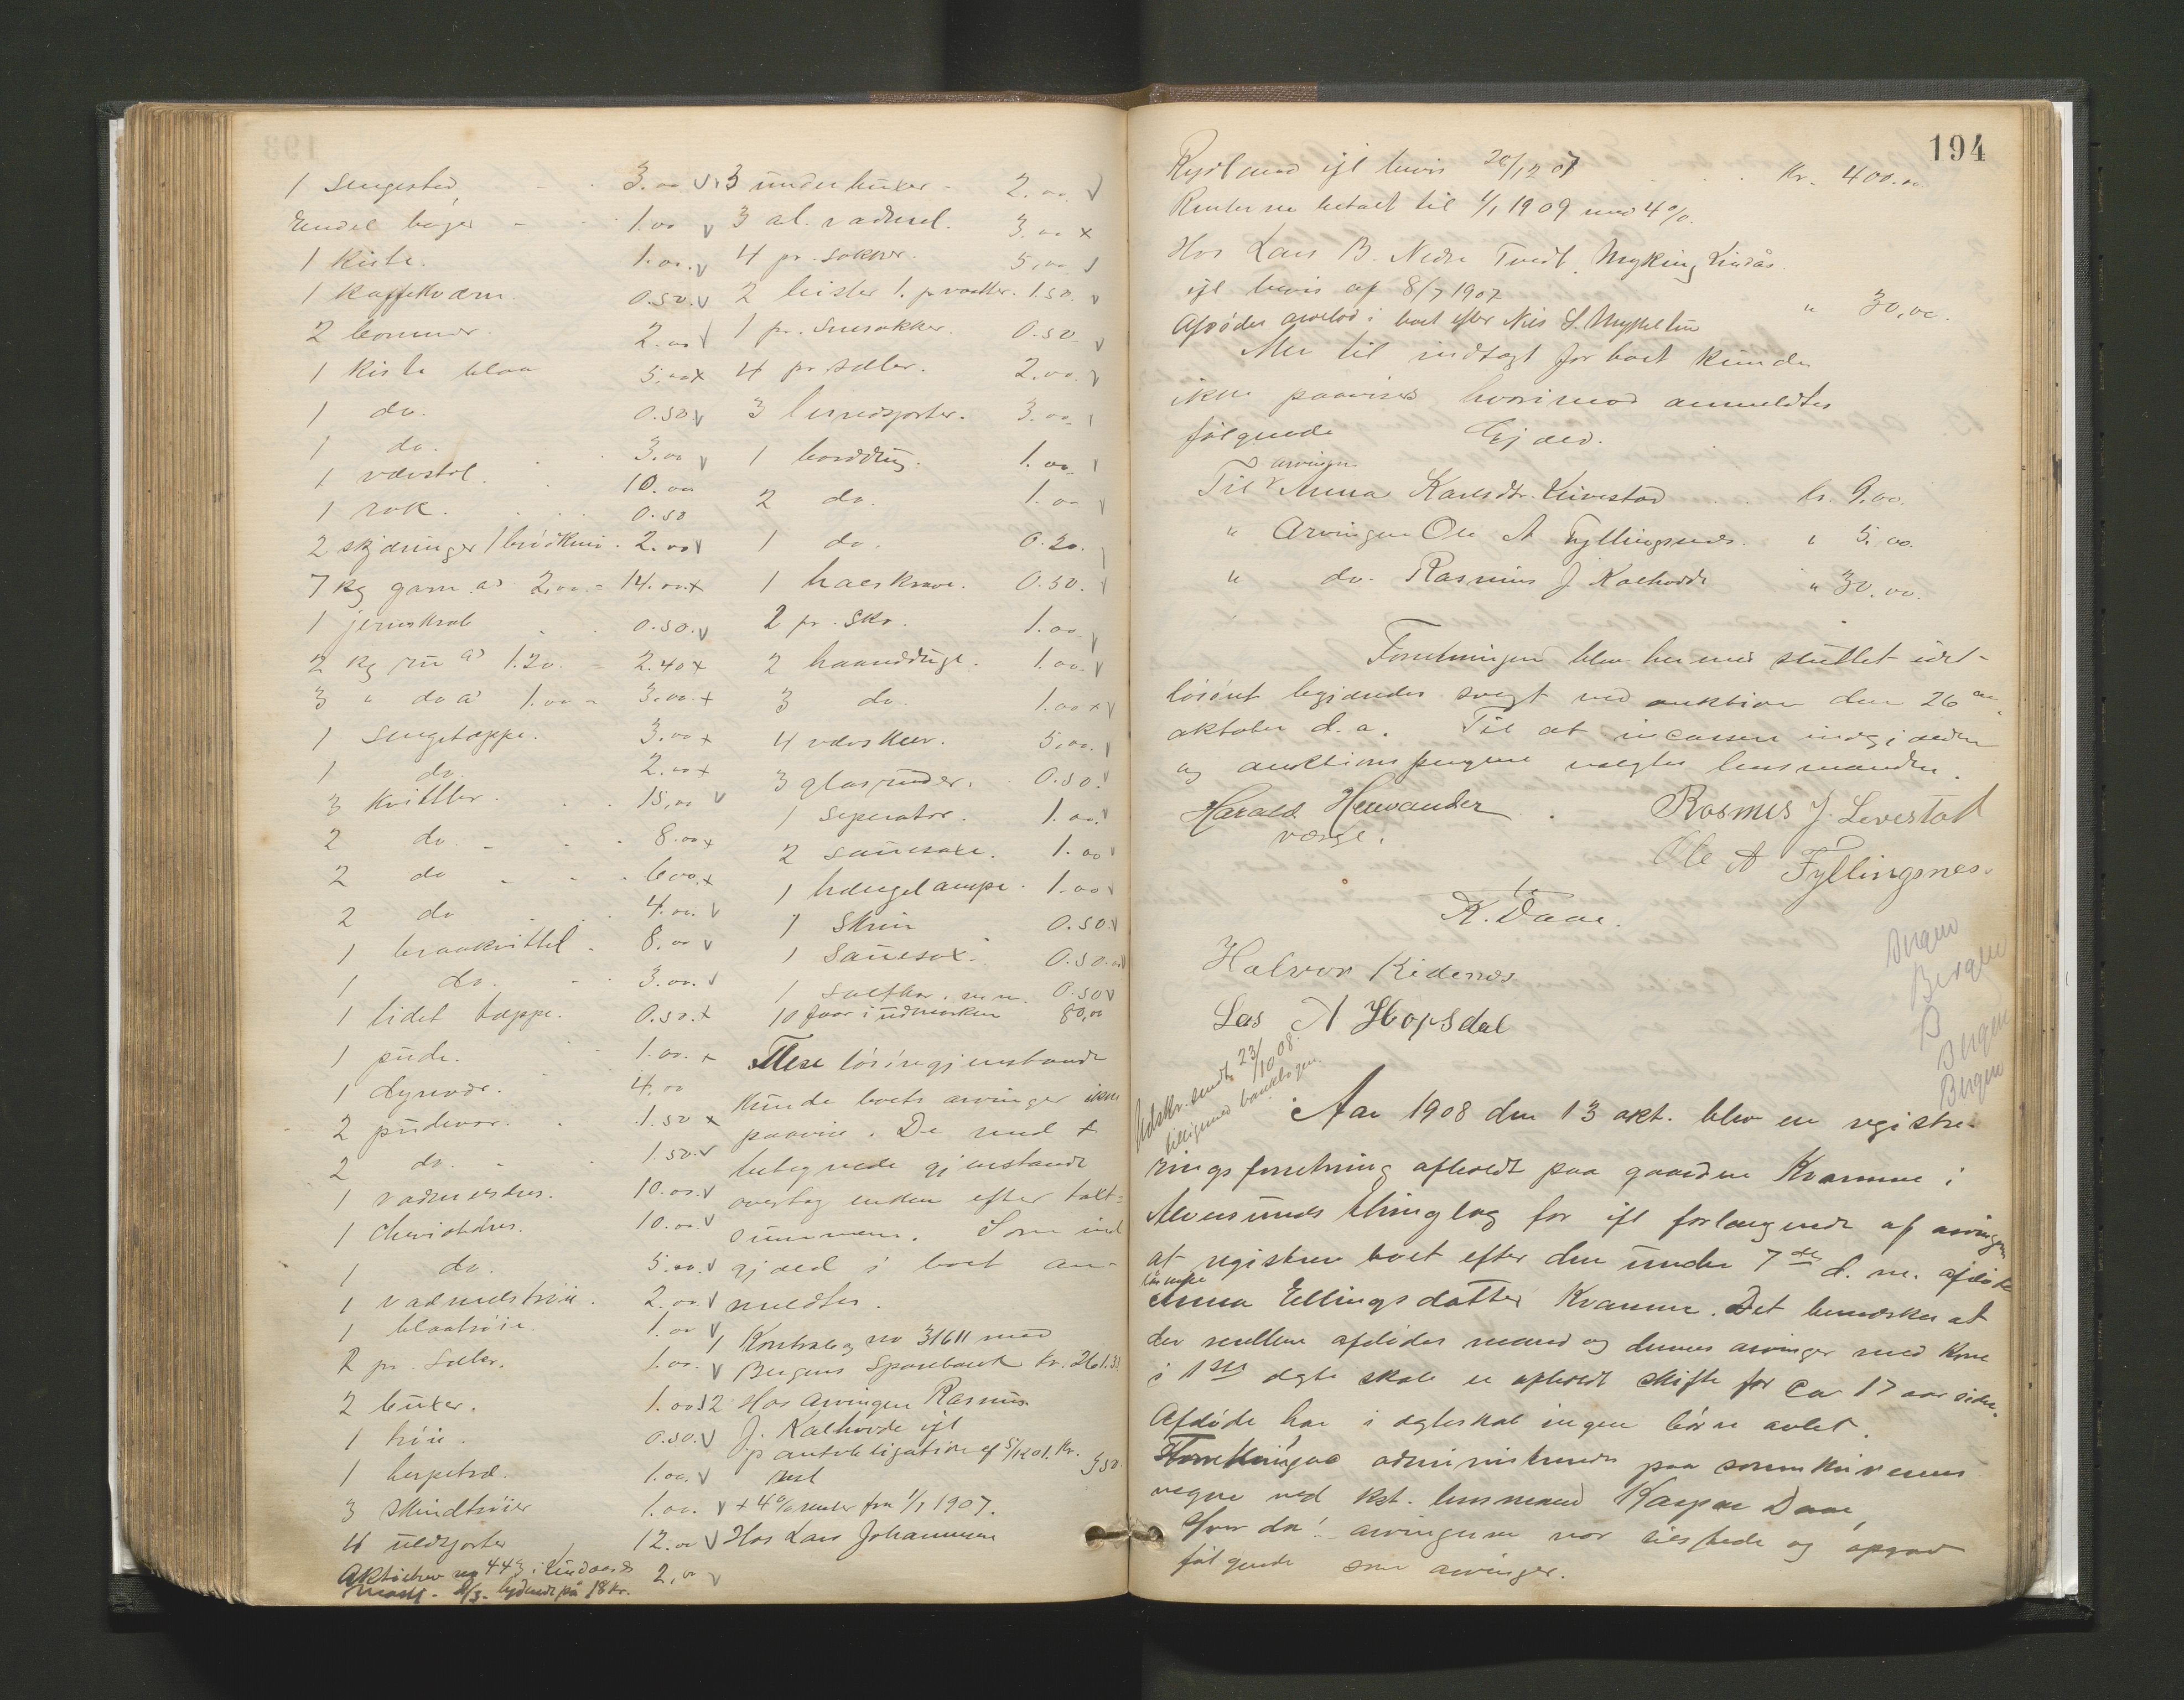 1 Sengested 3.00
Endel bøger 1.00
1 Kiste. 1.00.
1 Kaffekværn 0.50.
2 bommer. 2.00
1 Kiste blaa 5.00 x
1 do. 0.50
1 do. 3.00
1 vævstol. 10.00
1 rok. 0.50
2 skjæringer 1 2.00
7 kg garn à 2,00 - 14.00 x
1 jernskrab 0.50.
2 kg à 1.20. - 2.40 x
3 " do à 1.00 - 3.00. x
1 Sengetæppe. 3.00 x
1 do. 2.00 x
3 Kvittler. 15,00
2 do. 8.00 x
2 do 6.00. x
2 do 4.00.
1 8.00
1 do. 3.00.
1 lidet tæppe. 0.50. x
1 pude. 1.00. x
1 dynevær. 4.00
2 pudevær. 1.50 x
2 do. 1.50.
1 10.00.
1 10.00.
1 do. 5.00.
1 vadmelstrøie. 2.00.
1 blaatrøie. 1.00
2 pr. 1.00.
2 buxer. 1.00
1 trøie. 0.50.
1 hespetræ. 1.00.
3 Skindtrøier 1.00.
4 uldskjorter 12.00
Aktiebrev no 443 i Lindaas
lydende på 18 kr. 2,00
3 underbuxer 2.00
3 al. vadmel. 3.00 x
4 pr. sokker. 5,00
2 1. p vaatter. 1.50.
1 pr. 0.50
4 pr 2.00.
3 lerredsjorter. 3.00
1 borddug. 1.00
2 do. 1.00
1 do. 0.20.
1 halskrave. 0.50.
2 pr. Sko. 1.00
2 haandduge. 1.00.
3 do. 1.00 x
4 5,00.
3 glasruder. 0.50.
1 Seperator. 1.00.
2 sauesaxe. 1.00
1 hængelampe. 1.00
1 Skrin 0.50.
1 Sauesax. 0.50.
1 m. m. 0.50
10 faar i udmarken 80,00
Flere løsøregjenstande
kunde boets arvinger ikke
paavise. De med x
betegnede gjenstande
overtog enken efter takst-
summen. Som ind
gjæld i boet an-
meldtes.
1 Kontrabog no 31611 med
Bergens Sparebank kr. 261.33
2 Hos arvingen Rasmus
J. Kalhovde ifl
pantobligation af 5/12 01. Kr.
rest 350.
+ 4% renter fra 1/1 1907.
Hos Lars Johannesen
194
Rydland ifl bevis 20/12 07 Kr. 400.00
Renterne betalt til 1/1 1909 med 4%.
Hos Lars B. Nedre Tvedt, Myking Lindås
ifl bevis af 8/7 1907 " 30,00.
Afdødes arvelod i boet efter Nils S. Mykeltun
Mer til indtægt for boet kunde
ikke paavises hvorimod anmeldtes
følgende Gjæld.
Til arvingen Anna Karlsdtr. kr. 9.00.
" Arvingen Ole A Fyllingsnes. " 5.00.
" do. Rasmus J Kalhovde " 30.00.
Forretningen blev hermed sluttet idet
løsøret begjæredes solgt ved auktion den 26de
oktober d. a. Til at incassere indgjælden
og auktionspengene valgtes lensmanden.
Harald Herwander
værge.
Rasmus J. Levestad
Ole A Fyllingsnes.
K. Daae.
Halvor Kidenes
Las A Hopsdal
Bergen
Bergen
B
Bergen
Bergen
Udskr. sendt 23/10 08.
tilligemed bankbogen.
Aar 1908 den 13 okt. blev en registre-
ringsforretning afholdt paa gaarden Kvamme i
Alversunds thinglag for ifl forlangende af arvingerne
at registrere boet efter den under 7de d. m. afdøde
Anna Ellingsdatter Kvamme. Det bemærkes at
der mellem afdødes mand og dennes arvinger med Kone
i 1ste ægteskab er afholdt skifte for ca 17 aar siden.
Afdøde har i ægteskab ingen børn avlet.
Forretningen administreredes paa sorenskriverens
vegne ved kst. lensmand Kaspar Daae,
Hvorda! arvingerne var tilstede og opgav
følgende som arvinger.